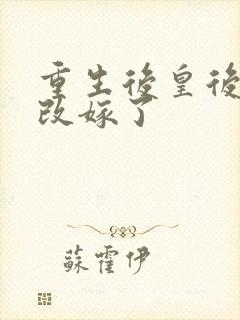 重生後皇後
改嫁了
蘇霍伊